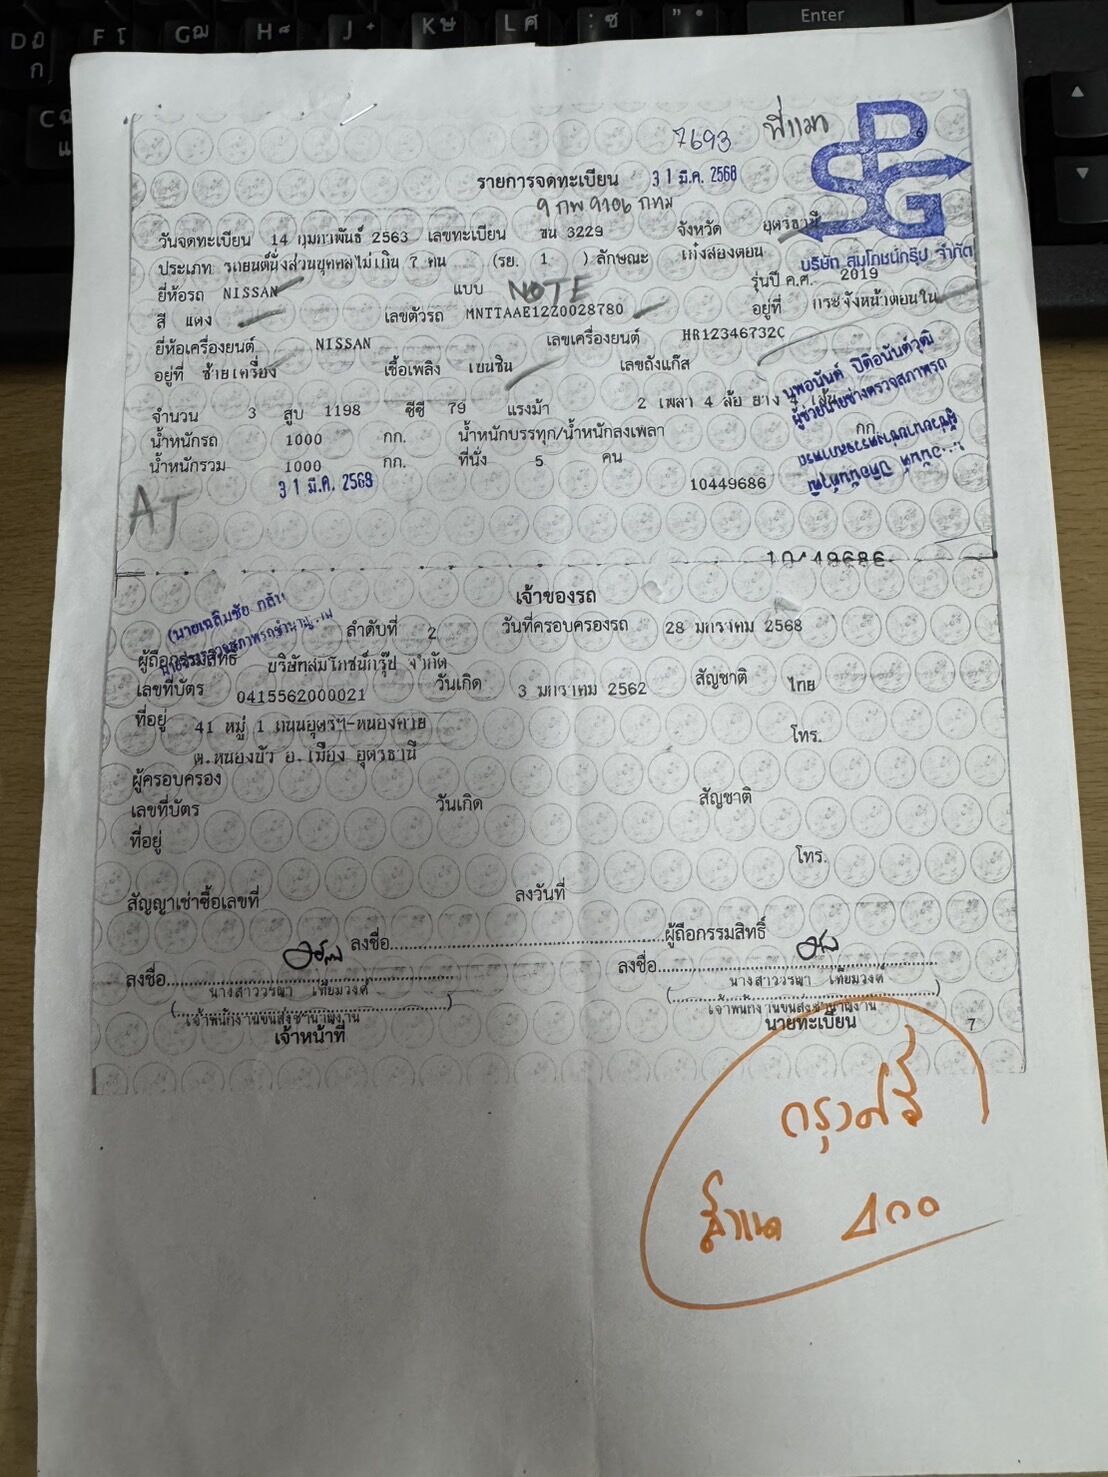 7693 พี่แมว
รายการจดทะเบียน 31 มี.ค. 2568
9 กพ 9106 กทม
วันจดทะเบียน 14 กุมภาพันธ์ 2563 เลขทะเบียน ขน 3229 จังหวัด อุดรธานี
บริษัท สมโภชน์กรุ๊ป จำกัด
ประเภท รถยนต์นั่งส่วนบุคคลไม่เกิน 7 คน (รย. 1 ) ลักษณะ เก๋งสองตอน
ยี่ห้อรถ NISSAN แบบ NOTE รุ่นปี ค.ศ. 2019
สี แดง เลขตัวรถ MNTTAAE12Z0028780 อยู่ที่ กระจังหน้าตอนใน
ยี่ห้อเครื่องยนต์ NISSAN เลขเครื่องยนต์ HR12346732C
อยู่ที่ ซ้ายเครื่อง เชื้อเพลิง เบนซิน เลขถังแก๊ส
จำนวน 3 สูบ 1198 ซีซี 79 แรงม้า 2 เพลา 4 ล้อ ยาง 4 เส้น
น้ำหนักรถ 1000 กก. น้ำหนักบรรทุก/น้ำหนักลงเพลา กก.
น้ำหนักรวม 1000 กก. ที่นั่ง 5 คน
ผู้ช่วยนายช่างตรวจสภาพรถ
31 มี.ค. 2568 10449686
AJ
10449686
เจ้าของรถ
ลำดับที่ 2 วันที่ครอบครองรถ 28 มกราคม 2568
ผู้ถือกรรมสิทธิ์ บริษัทสมโภชน์กรุ๊ป จำกัด
เลขที่บัตร 0415562000021 วันเกิด 3 มกราคม 2562 สัญชาติ ไทย
ที่อยู่ 41 หมู่ 1 ถนนอุดรฯ-หนองคาย โทร.
ต.หนองบัว อ.เมือง อุดรธานี
ผู้ครอบครอง
เลขที่บัตร วันเกิด สัญชาติ
ที่อยู่ โทร.
สัญญาเช่าซื้อเลขที่ ลงวันที่
ลงชื่อ ผู้ถือกรรมสิทธิ์
ลงชื่อ ลงชื่อ
นางสาววรญา เทียมวงศ์ นางสาววรญา เทียมวงศ์
เจ้าพนักงานขนส่งชำนาญงาน เจ้าพนักงานขนส่งชำนาญงาน
เจ้าหน้าที่ นายทะเบียน 7
กรุงศรี
400